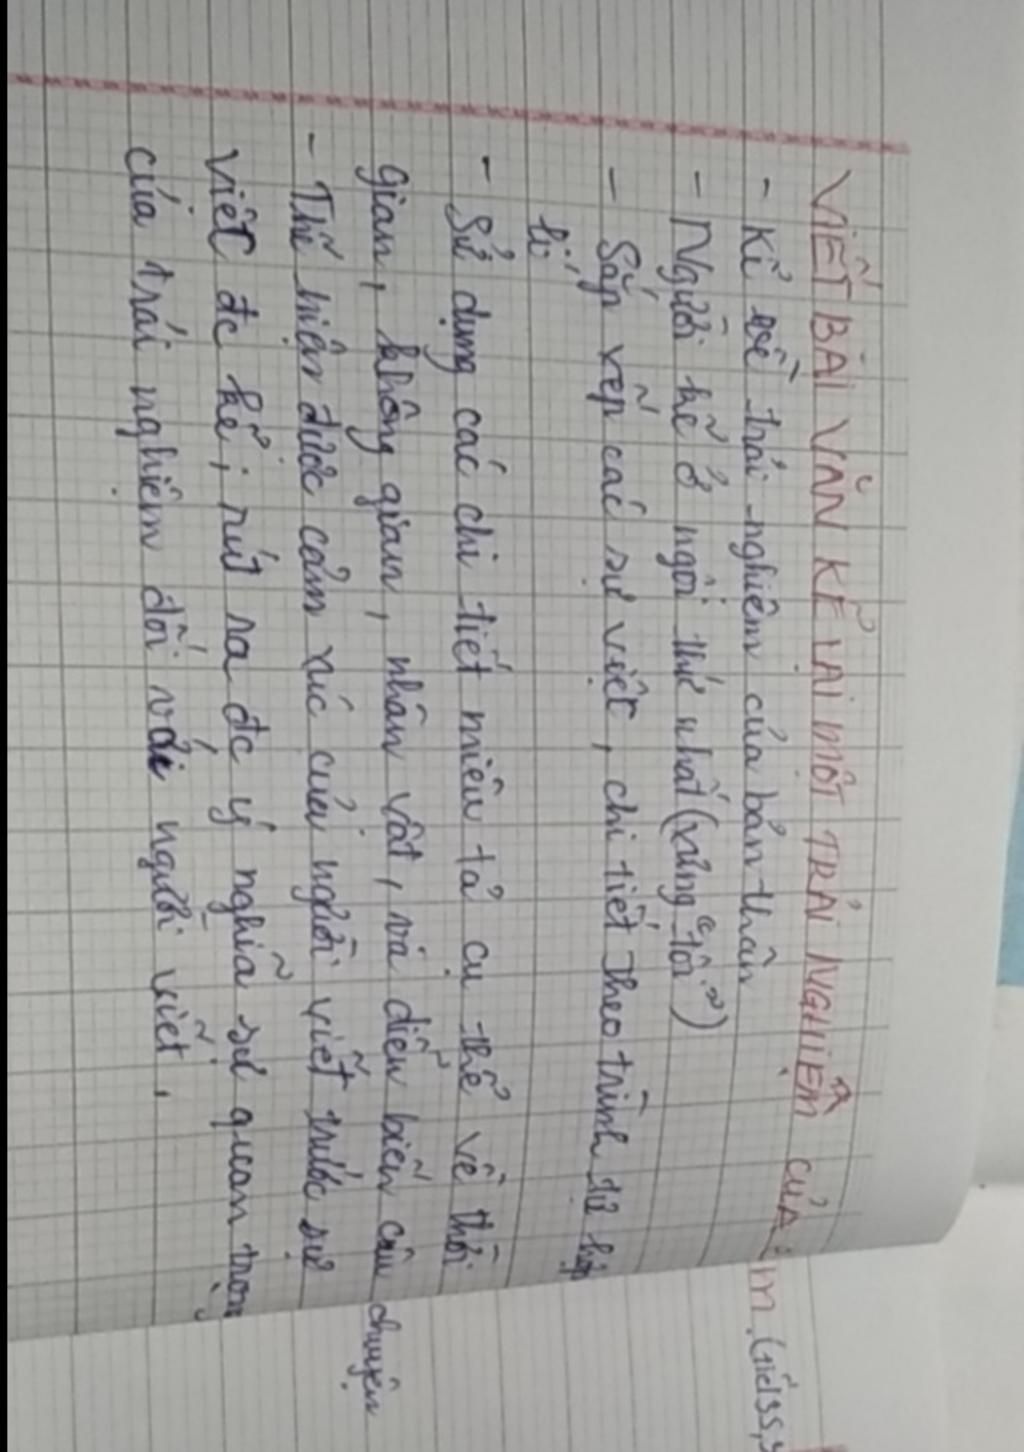 VIẾT BÀI VĂN KỂ LẠI MỘT TRẢI NGHIỆM CỦA
- Kể về trải nghiệm của bản thân
- Người kể ở ngôi thứ nhất (xưng "tôi")
- Sắp xếp các sự việc, chi tiết theo trình tự hợp
lí
- Sử dụng các chi tiết miêu tả cụ thể về thời
gian, không gian, nhân vật, và diễn biến câu chuyện
- Thể hiện được cảm xúc của người viết trước sự
việc đc kể; rút ra đc ý nghĩa sự quan trọng
của trải nghiệm đối với người viết.